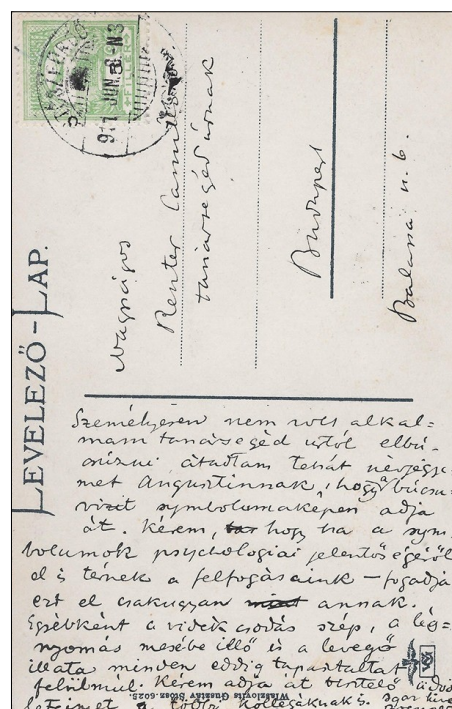 LEVELEZŐ-LAP.
911 JUN
Nagyságos
Reuter Camillo
tanársegéd úrnak
Budapest
Balassa u. 6.
Személyesen nem volt alkal=
mam tanársegéd úrtól elbú-
csúzni átadtam tehát névjegye
met Augustinnak, hogy a búcsu
vizit symbolumaképen adja
át. Kérem, hogy ha a sym
bolumok psychologiai jelentőségéről
el is térnek a felfogásaink – fogadja
ezt el csakugyan annak.
Egyébként a vidék csodás szép, a lég=
nyomás mesébe illő is a levegő
illata minden eddig tapasztaltat
felülmúl. Kérem adja át tisztelő üdvöz
letemet a többi kollegáknak is.
Wlaszlovits Gusztáv Stósz. 6025.